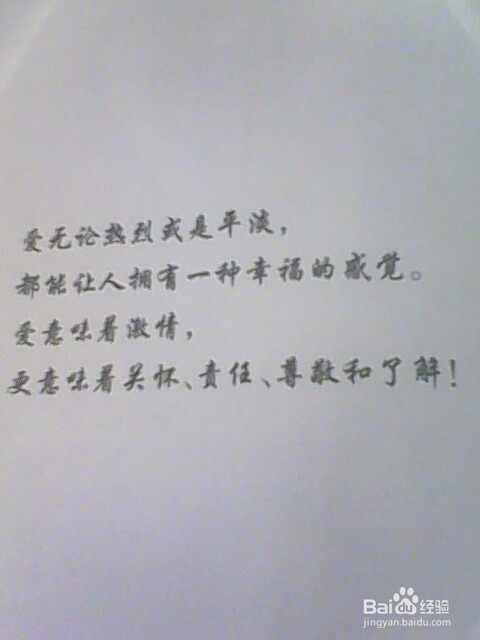 爱无论热烈或是平淡，
都能让人拥有一种幸福的感觉。
爱意味着激情，
更意味着关怀、责任、尊敬和了解！
Baidu经验
jingyan.baidu.com